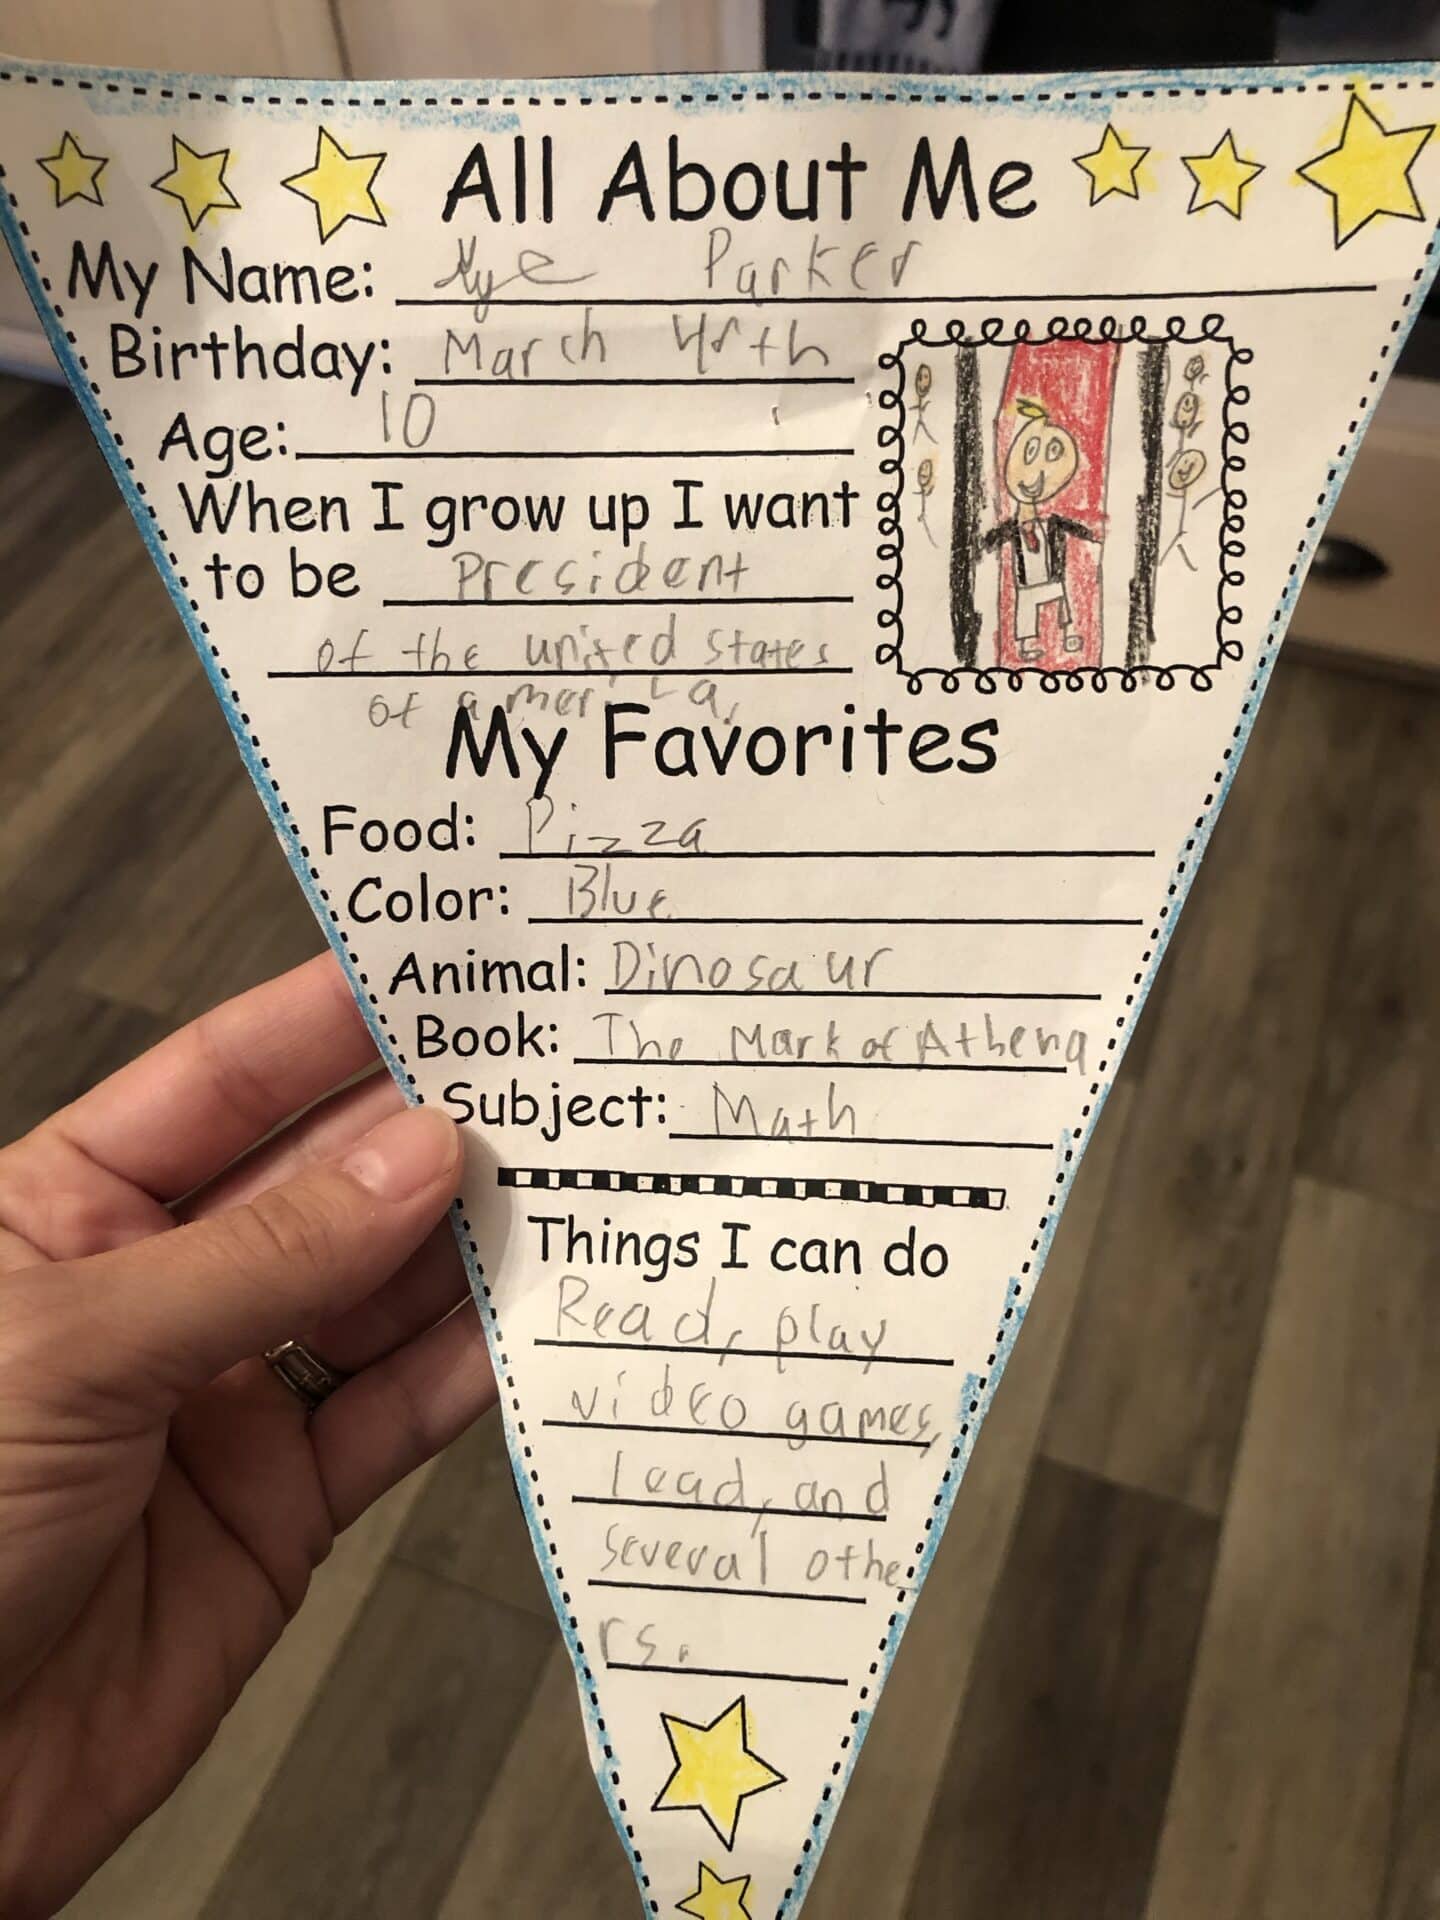 All About Me
My Name: Nye Parker
Birthday: March 4rth
Age: 10
When I grow up I want
to be President
of the united states
of america,
My Favorites
Food: Pizza
Color: Blue
Animal: Dinosaur
Book: The Mark of Athena
Subject: Math
Things I can do
Read, play
video games,
lead, and
several othe
rs.